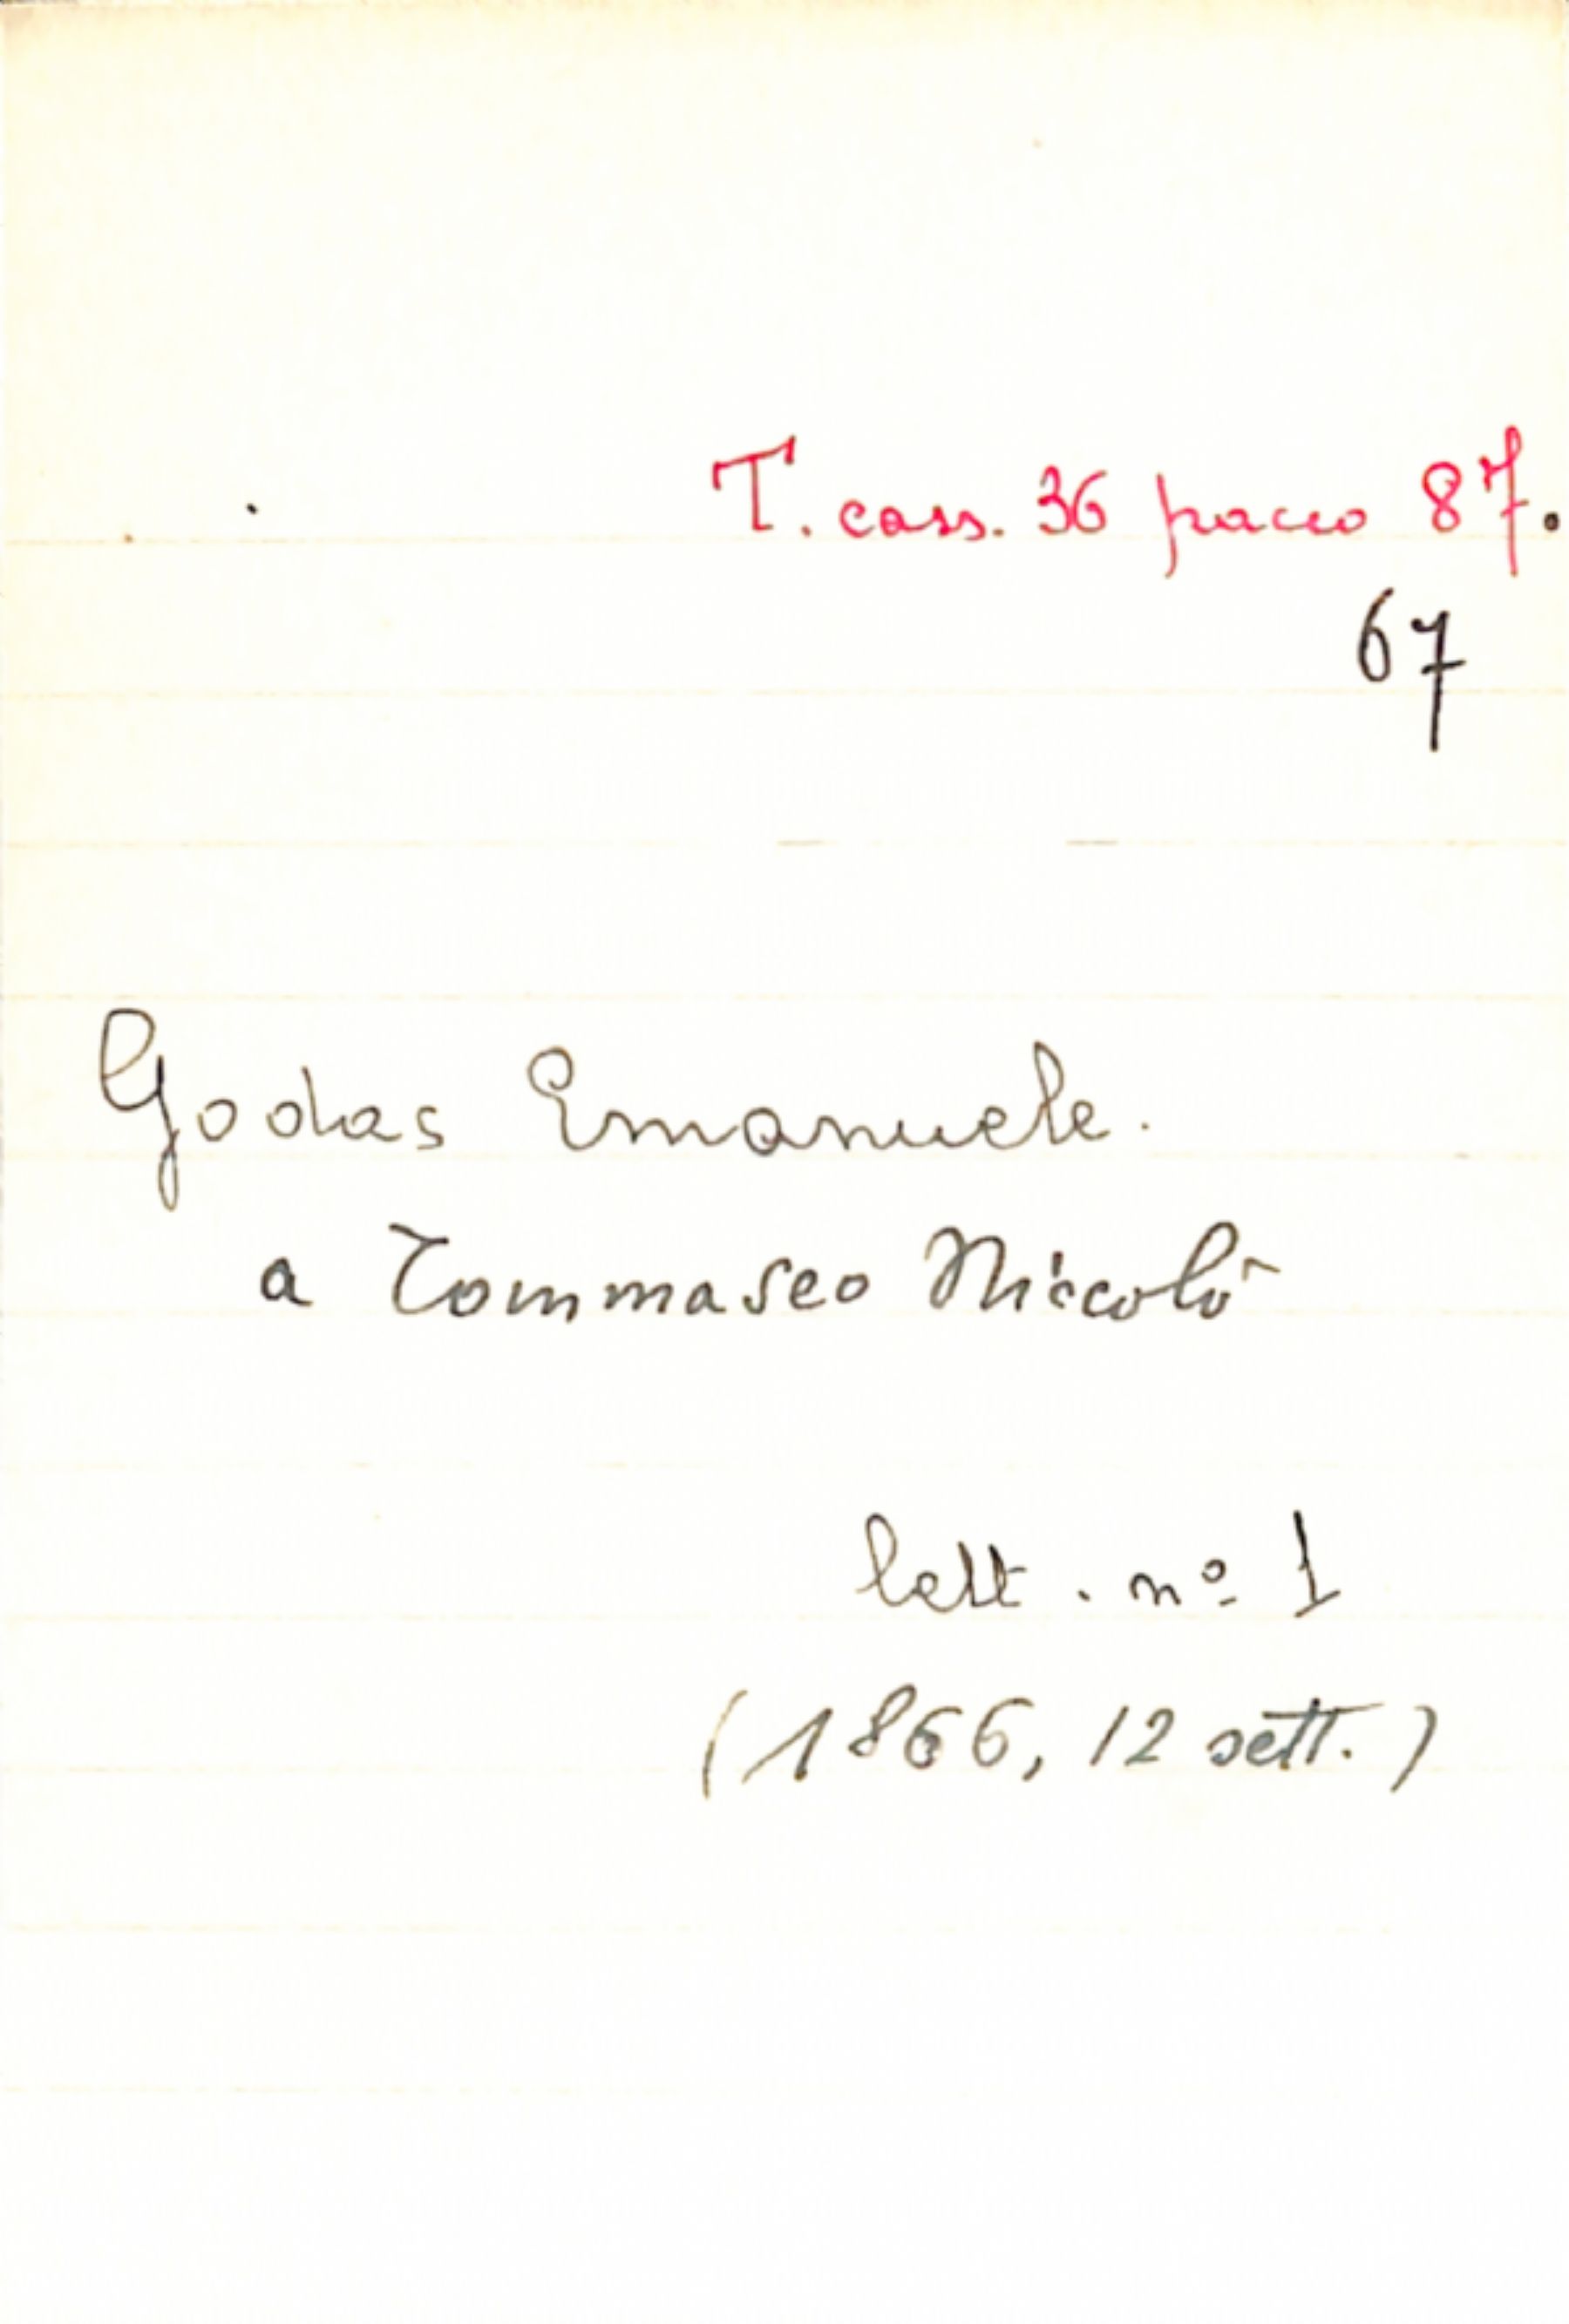 T. cass. 36 pacco 87.
67
Godas Emanuele.
a Tommaseo Niccolò
lett. nº 1
(1866, 12 sett.)